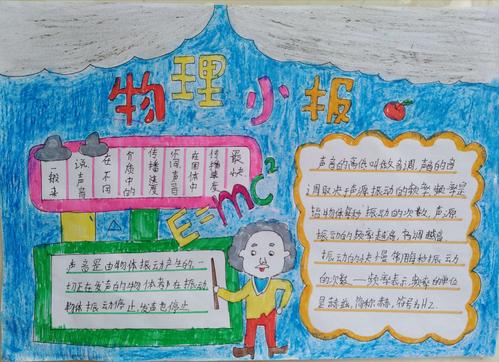 物理小报
一般来
说声音
在不同
介质中的
传播速度
不同声音
在固体中
传播速度
最快
E=mc²
声音是由物体振动产生的,一
切正在发声的物体都在振动,
物体振动停止,发声也停止
声音的高低叫做音调,声音的音
调取决于声源振动的频率,频率是
指物体每秒振动的次数,声源
振动的频率越高,音调越高
振动的快慢常用每秒振动
的次数——频率表示,频率的单位
是赫兹,简称赫,符号为HZ.